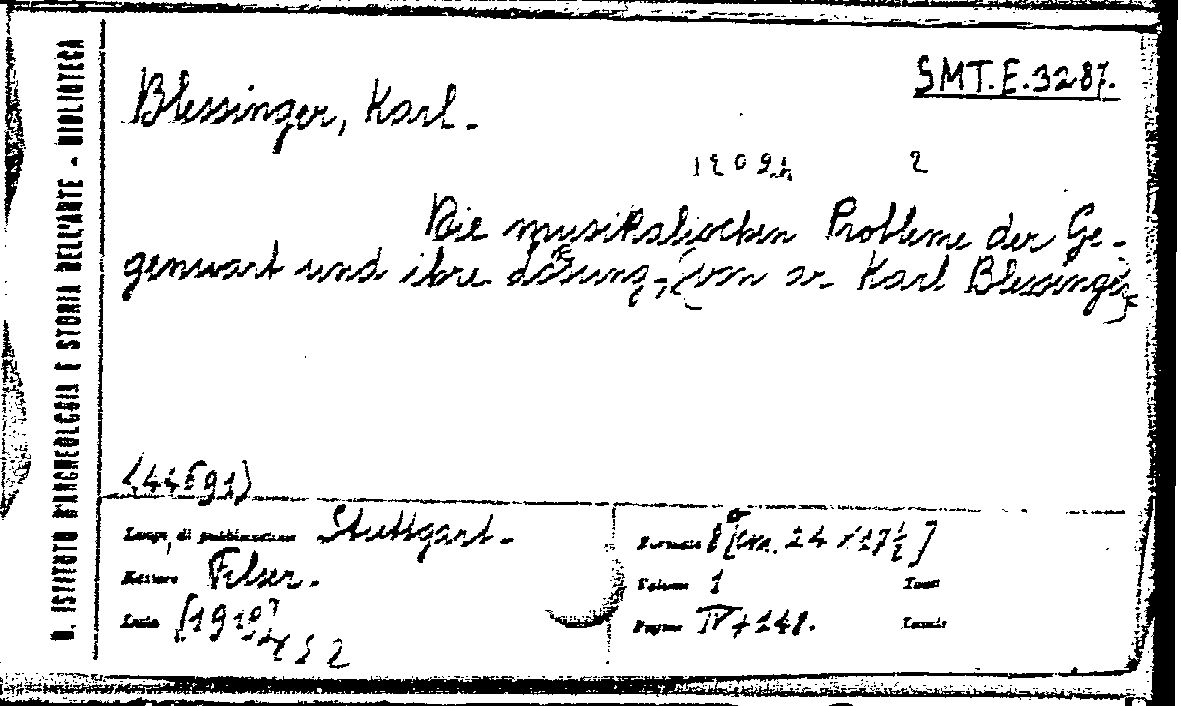 R. ISTITUTO D'ARCHEOLOGIA E STORIA DELL'ARTE - BIBLIOTECA
SMT.E.3287.
Blessinger, Karl.
1209 2
Die musikalischen Probleme der Ge-
genwart und ihre Lösung, (von Dr Karl Blessinger)
(44591)
Luogo di pubblicazione Stuttgart.
Editore Filser.
Data [1919]
152
Formato 8° [cm. 24 × 17½]
Volume 1 Tomi
Pagine IV+148. Tavole